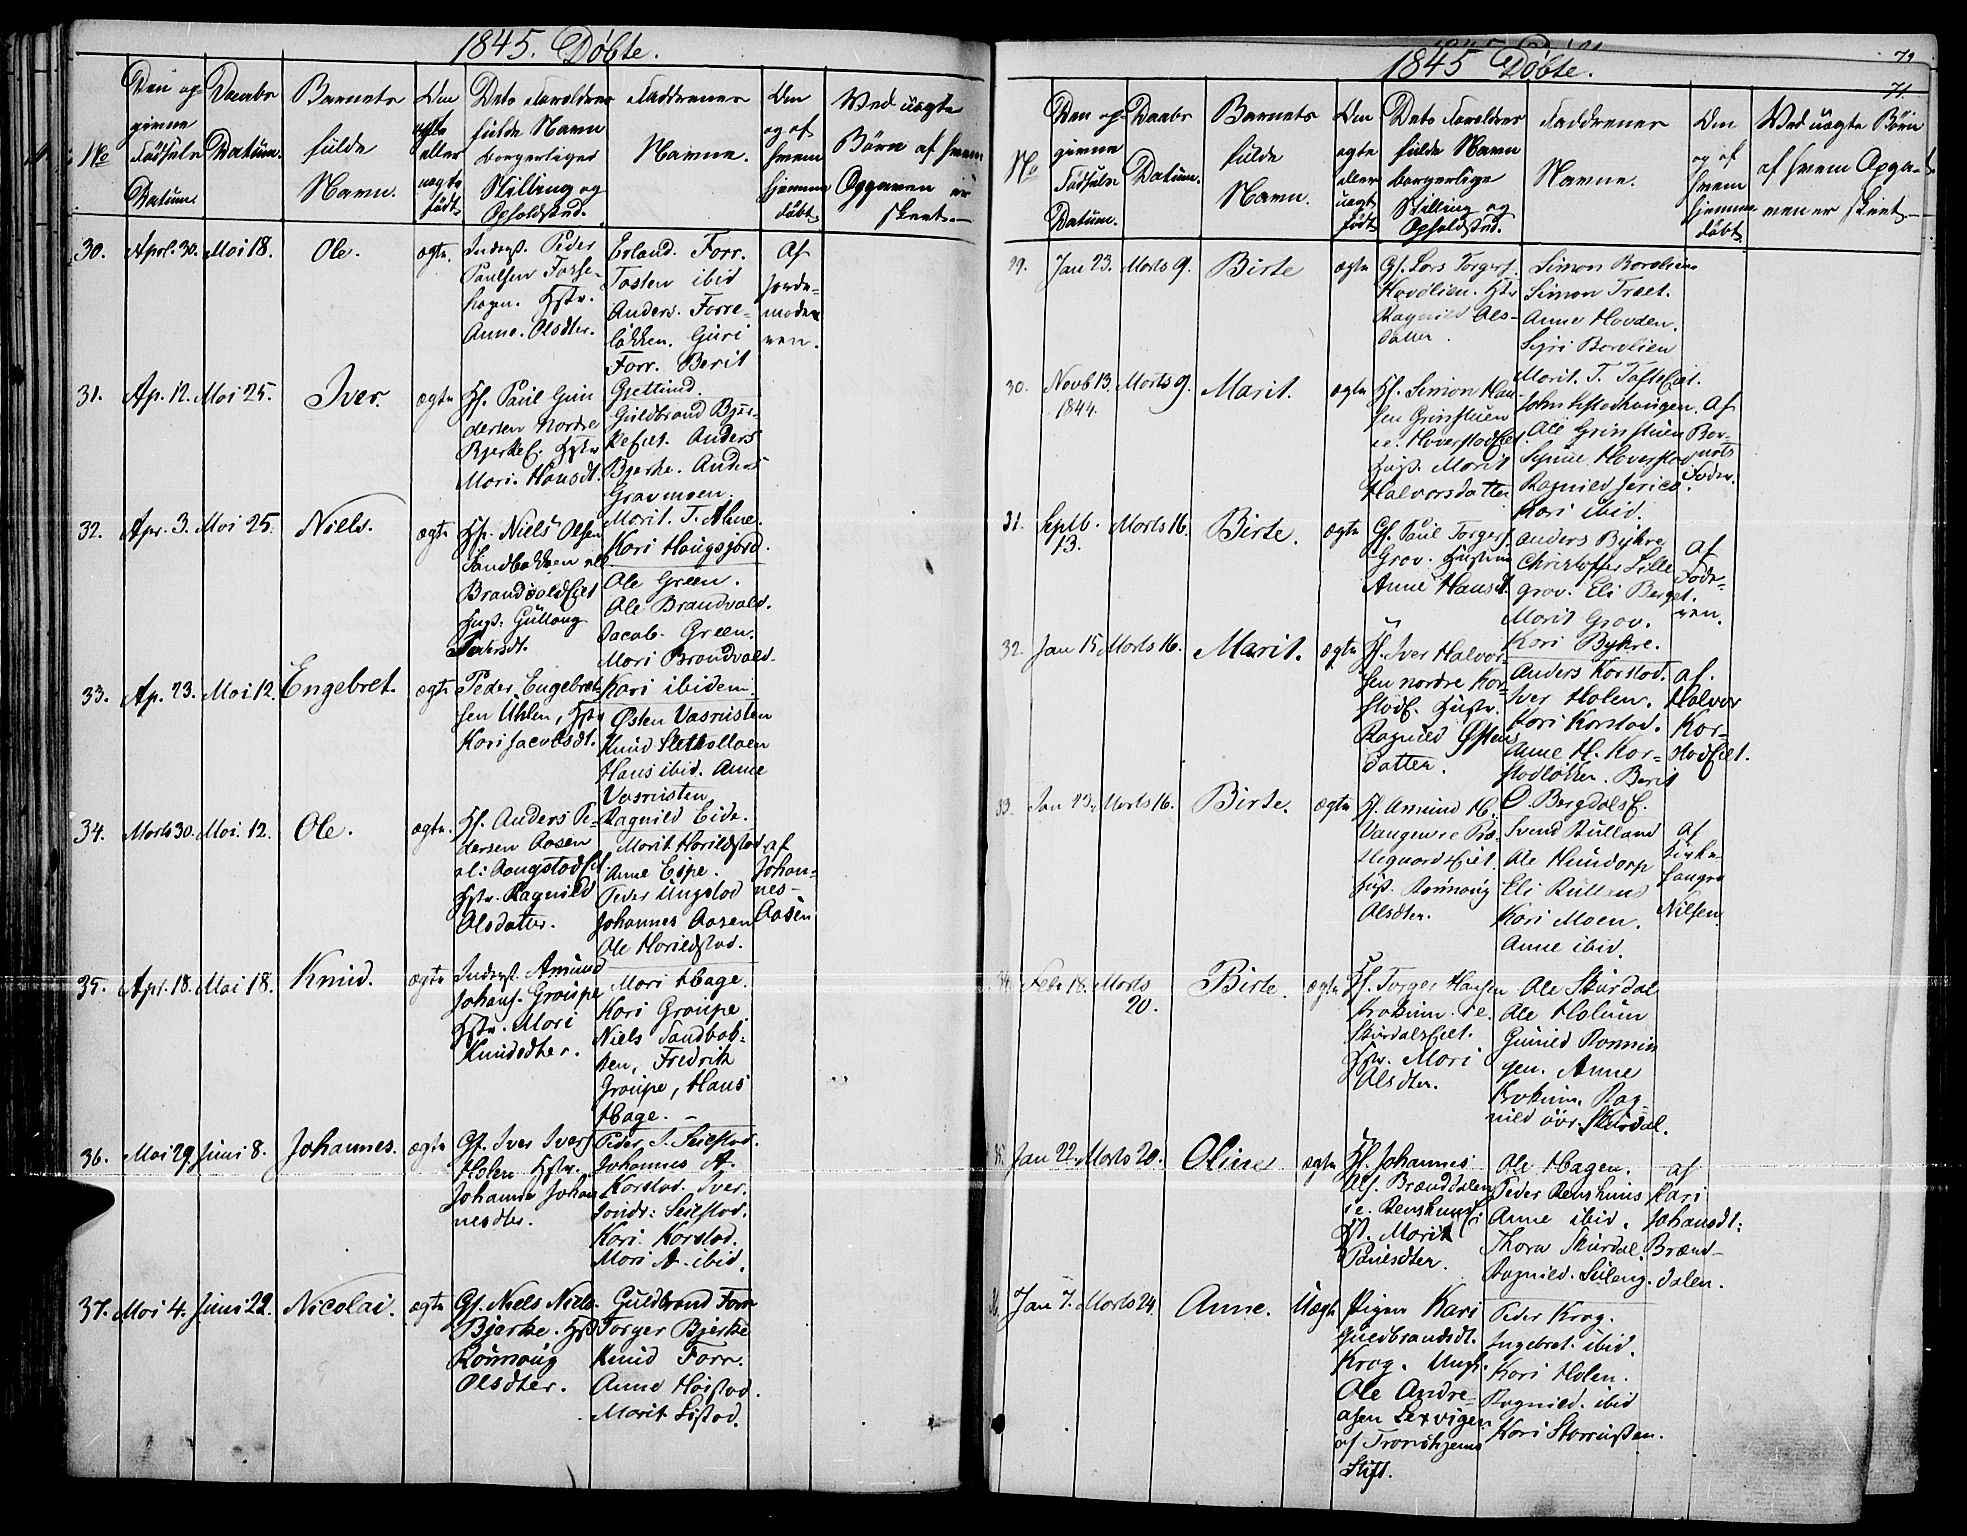 1845. Døbte.
No
Den op-
givne
Fødsels
Datum.
Daabs
Datum.
Barnets
fulde
Navn.
Om
ægte
eller
uægte
født.
Dets Forældres
fulde Navn
borgerliges
Stilling og
Opholdsted.
Faddrenes
Navne.
Om
og af
hvem
hjemme
døbt.
Ved uægte
Børn af hvem
Opgaven er
skeet.
30. Aprl. 30. Mai 18. Ole. ægte.
Inderst. Peder
Paulsen Forse-
hagen. Hstr.
Anne. Olsdter.
Erland. Forr.
Tosten ibid
Anders. Forre-
løkken. Guri
Forr. Berit
Gjetlund.
Af
Jorde-
moder
ren.
31. Ap. 12. Mai 25. Iver. ægte
Hf. Paul Gun
dersen Nordre
Bjerke E. Hstr
Mari. Hansdt.
Guldbrand Bjer-
keEiet. Anders
Bjerke. Anders
Gravmoen.
Marit. T. Alme.
Kari Haugsjord.
32. Apr. 3. Mai 25. Niels. ægte
Hf. Niels Olsen
Sandbakken
BrandvoldEiet
Hus: Gullaug
Pedersdt.
Ole Green.
Ole Brandvold.
Jacob. Green.
Mari Brandvold.
Kari ibidem
33. Ap. 23. Mai 12 Engebret. ægte
Peder Engebret
sen Uhlen, Hstr
Kari Jacobsdt.
Østen Vasrusten
Knud SletteMoen
Hans ibid. Anne
Vasrusten
Ragnild Eide.
34. Marts 30. Mai. 12. Ole. ægte.
Hf. Anders Pe-
dersen Aasen
al: AangstadEiet.
Hstr. Ragnild
Olsdatter.
Marit Harildstad.
Anne Espe.
Peder Ungstad
Johannes Aasen
Ole Harildstad.
af
Johan-
nes-
Aasen
35. Apr. 18. Mai 18. Knud. ægte
Inderst. Amund
Johans. Graupe
Hstr. Mari
Knudsdter.
Mari Hage.
Kari Graupe
Niels Sandbak-
ken, Fredrik
Graupe, Hans
Hage. -
36. Mai 29. Juni 8. Johannes. ægte
Gf. Iver Ivers
Holen Hstr.
Johanne Johan
nesdter.
Peder. I. Seielstad.
Johannes A.
Korstad. Iver.
søndr: Seielstad.
Kari Korstad.
Mari A. ibid.
37. Mai 4. Juni 22. Nicolai. ægte
Gf. Niels Niels.
Bjerke. Hst
Rønnaug
Olsdter.
Guldbrand Forr
Torger Bjerke
Knud Forr.
Anne Høistad.
Marit Listad.
1845 Døbte.
79
71.
No
Den op-
givne
Fødsels
Datum.
Daabs
Datum.
Barnets
fulde
Navn.
Om
ægte
eller
uægt
født
Dets Forældres
fulde Navn
borgerlige
Stilling og
Opholdsted.
Faddrenes
Navne.
Om
og af
hvem
hjemme
døbt.
Ved uægte Børn
af hvem Opga-
ven er skeet.
29. Jan 23. Marts 9. Birte ægte
Gf. Lars Torgers.
Hovdlien. Hstr
Ragnild Ols-
datter.
Simon Bordlien
Simon Traet.
Anne Hovden.
Sigri Bordlien
Marit. T. TofteEiet.
30. Novb 13. 1844. Marts 9. Marit. ægte
Hf. Simon Han
sen Grinstuen
ie. HoverstadEiet.
Hus. Marit
Halvorsdatter
Ole Grinstuen
Ragnild
Kari ibid.
Af
Bar-
nets
Fader.
31. Septb. 13. Marts 16. Birte. ægte
Gf. Paul Torgers.
Grov. Hustrue
Anne Hansdt.
Anders Bykre
Christoffer Lille
grov. Eli Berget.
Marit Grov.
Kari Bykre.
af
Fade-
ren.
32. Jan 15 Marts 16. Marit. ægte
Hf. Iver Halvor-
sen nordre Kor-
stadE. Hustr.
Ragnild Østens
datter.
Anders Korstad.
Iver Holen.
Kari Korstad.
Anne H. Kor-
stadløkken. Berit
O. BergdalsE.
af.
Halvor
Kor-
stadEiet.
33. Jan 23. Marts 16. Birte. ægte
Hf. Amund H.
Vangen ie Præ-
stegaardsEiet.
Hus. Rønnaug
Olsdter.
Svend Rulland
Ole Hundorp
Eli Rulland
Kari Moen.
Anne ibid.
af
Kirke-
sanger
Nilsen
34. Feb. 18. Marts 20. Birte. ægte
Hf. Torger Hansen
Brokuen. ie.
SkurdalsEiet.
Hstr. Mari
Olsdter.
Ole Skurdal
Ole Holum
Gunild Rønnin
gen. Anne
Brokuen. Rag-
nild övr. Skurdal.
35. Jan 22. Marts 20. Oline ægte
Hf. Johannes
Ols. Brænddalen
ie.
Hst. Marit
Paulsdter.
Ole Hagen.
Peder
Anne ibid.
Thora Skurdal.
Ragnild.
af
Kari
Johansdt:
Brænd-
dalen.
36. Jan 7. Marts 24. Anne. Uægte
Pigen Kari
Guldbrandsdt.
Krog. Ungk.
Ole Andre-
asen Lexvigen
af Trondhjems
Stift.
Peder Krog.
Ingebret. ibid.
Kari Holen.
Ragnild. ibid
Kari Storrusten.